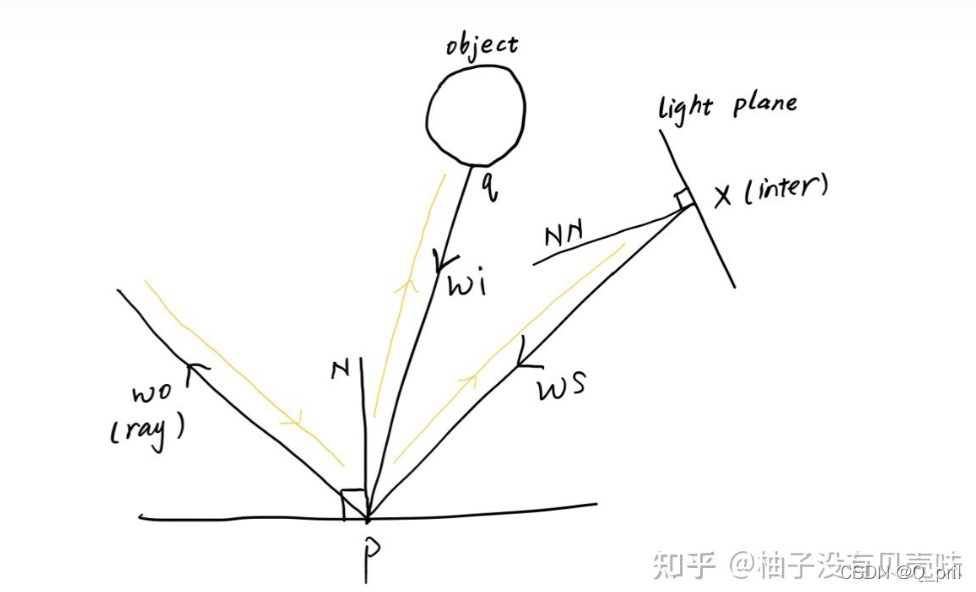 object
light plane
q
X (inter)
NN
wi
N
wo
(ray)
ws
P
知乎 @柚子没有贝壳味
CSDN @Q_pril